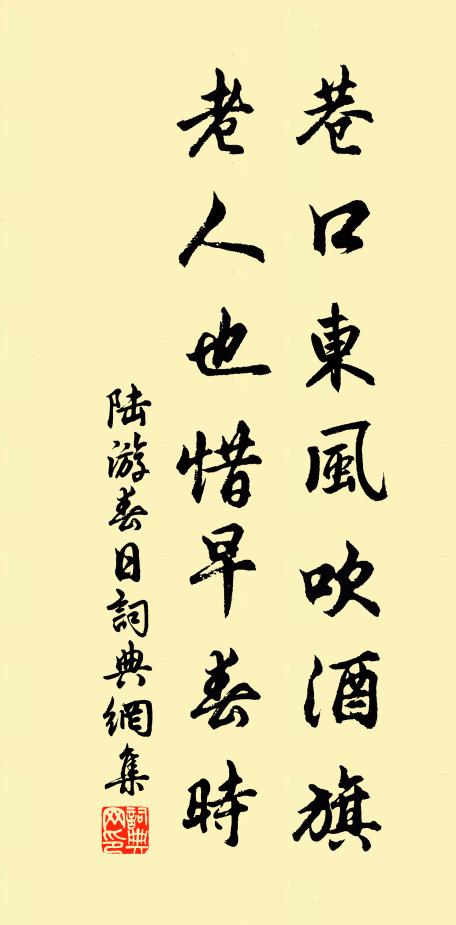 巷口東風吹酒旗
老人也惜早春時
陆游春日詞典網集
詞典網印